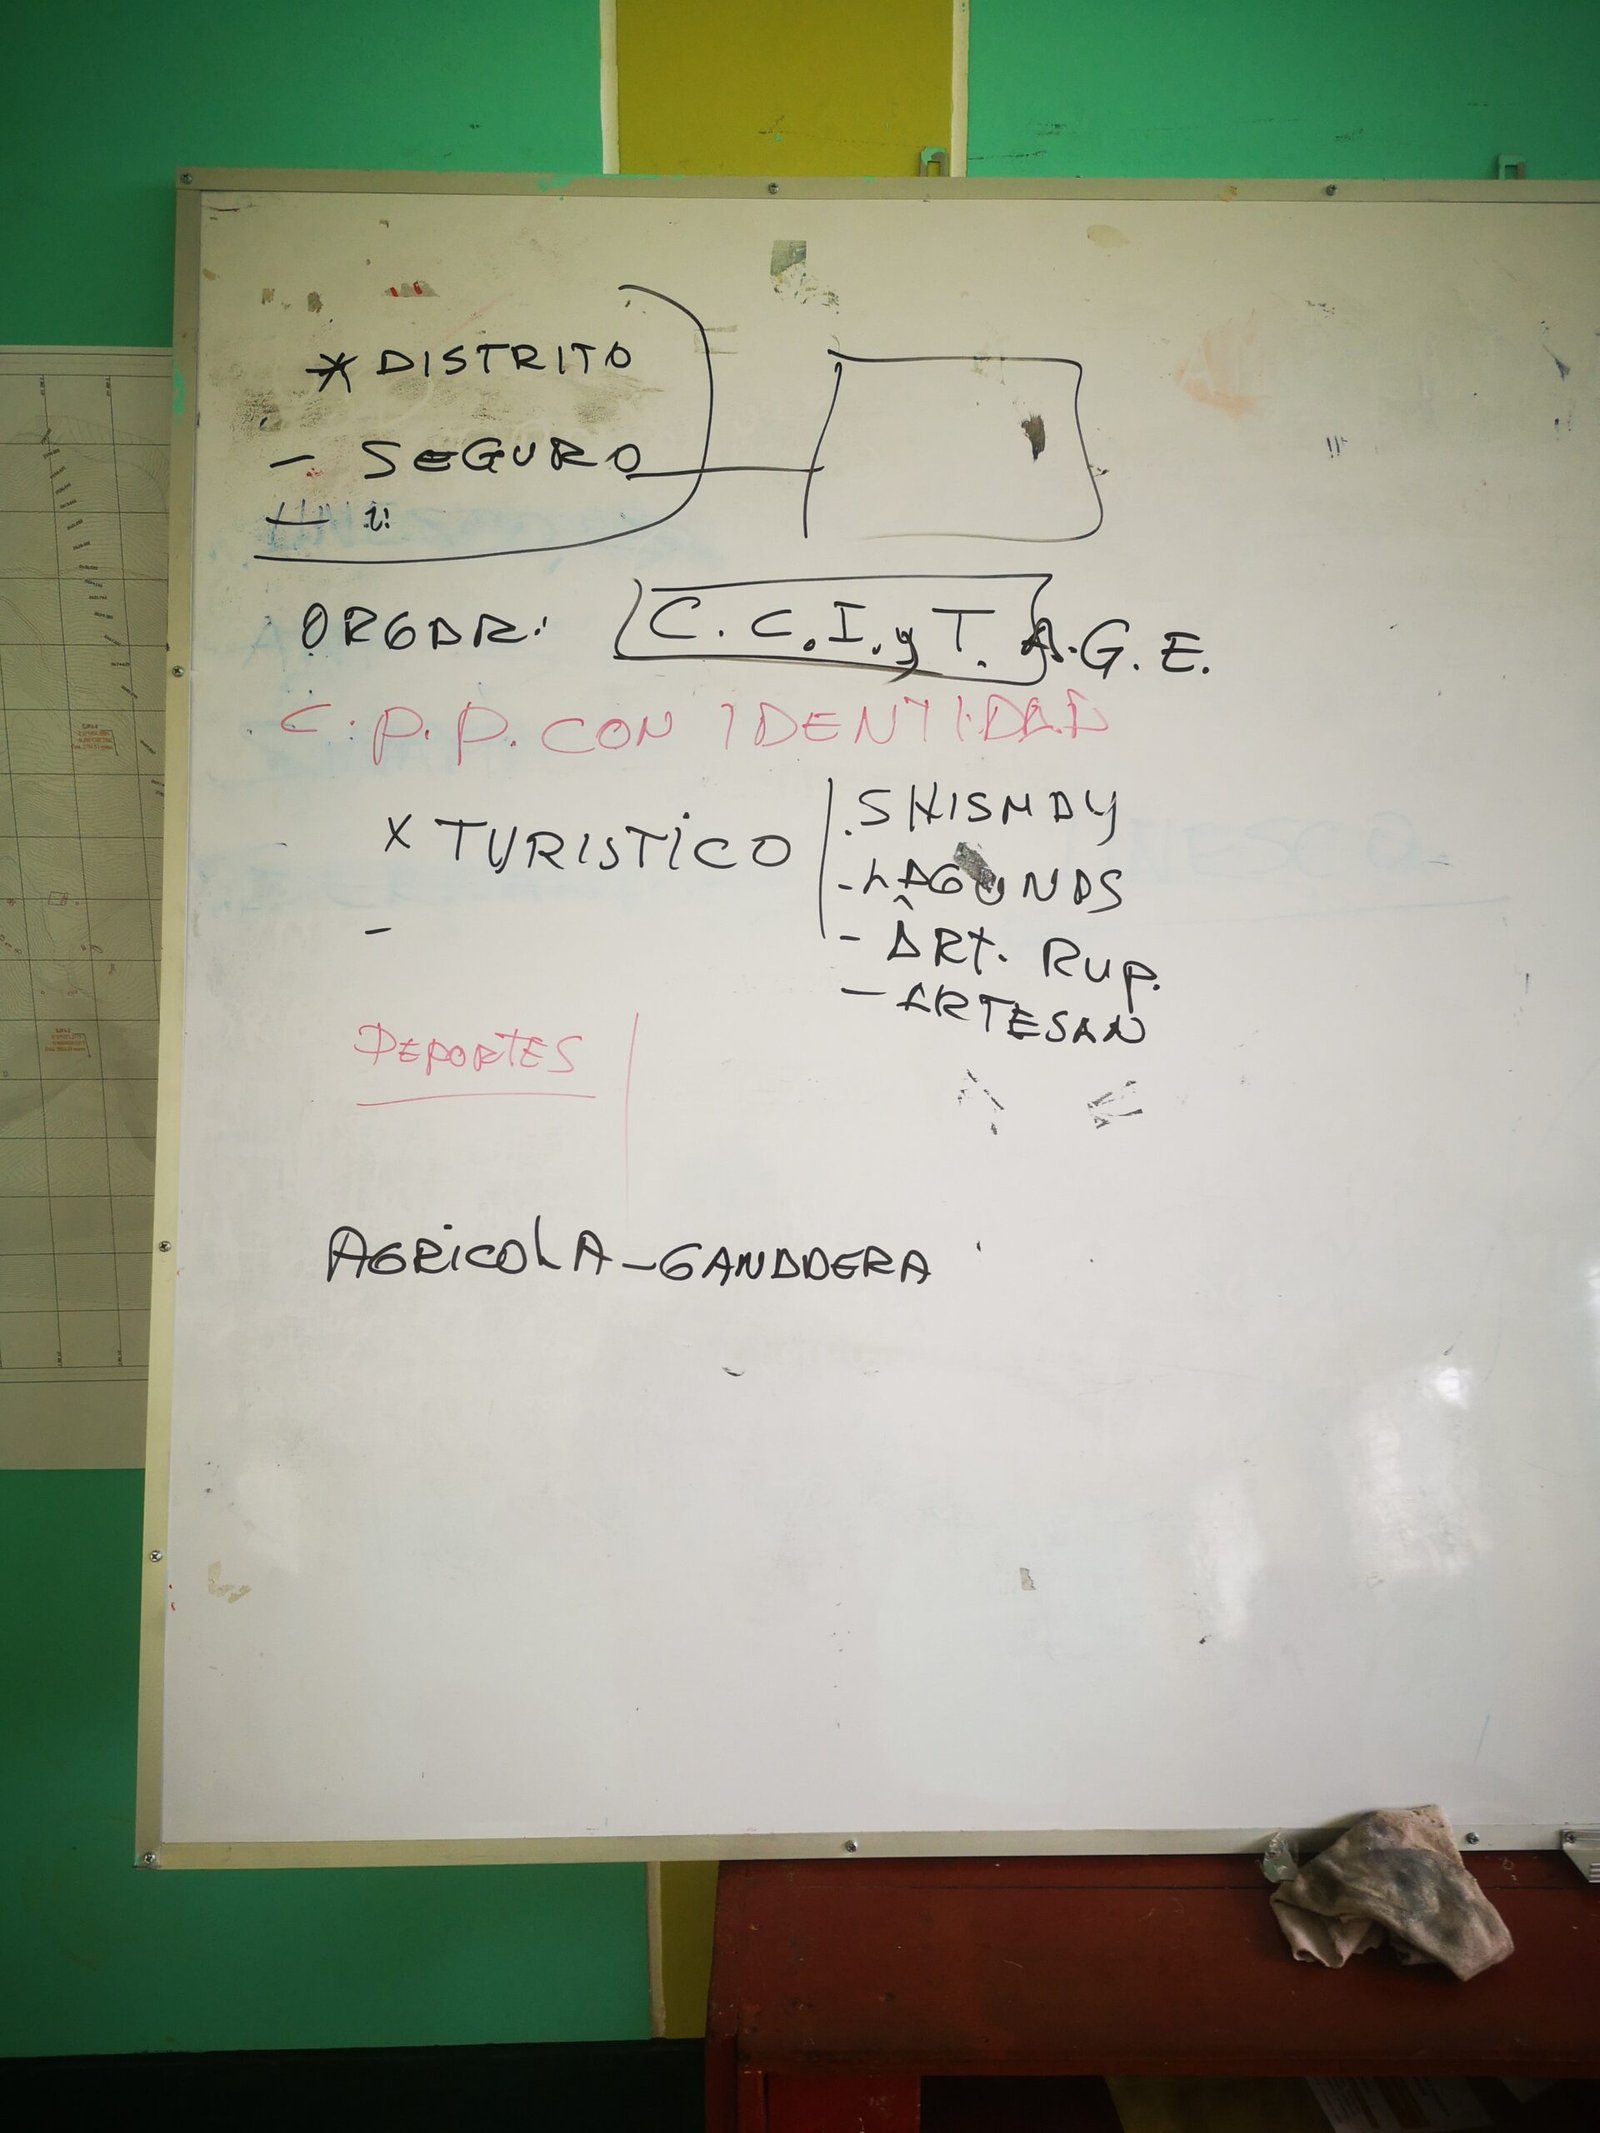 * DISTRITO
- SEGURO
ORGAR: C.C.I.y T. A.G.E.
C.P.P. CON IDENTIDAD
X TURISTICO
. SHISMAY
- LAGUNAS
- ART. RUP.
- ARTESAN
-
DEPORTES
AGRICOLA-GANADERA